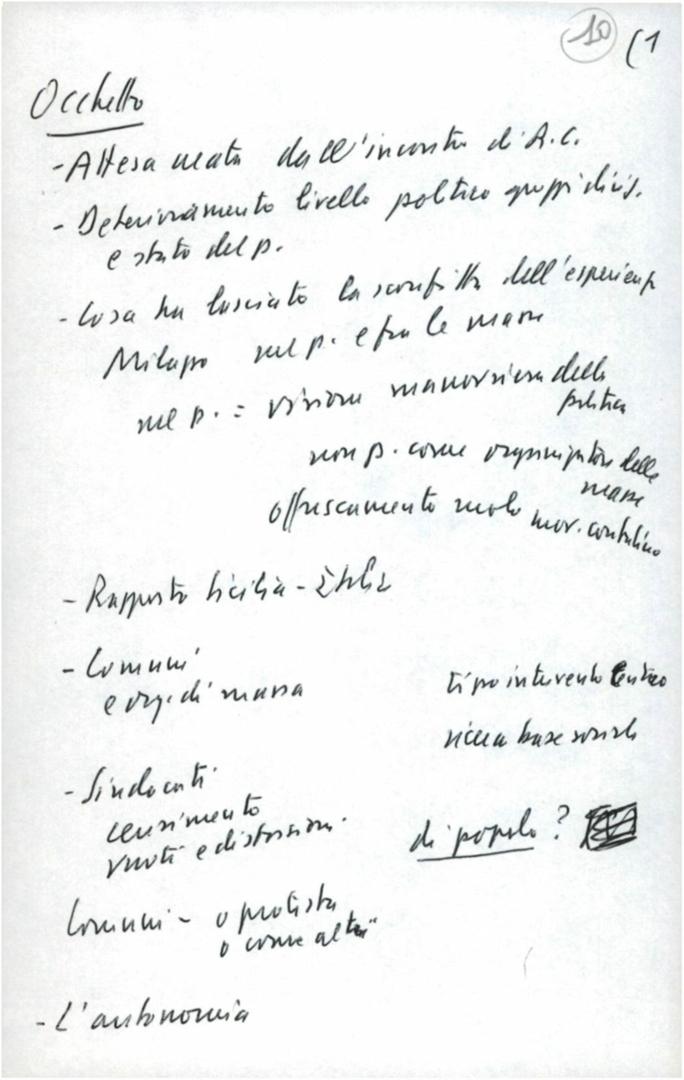 10 (1
Occhetto
- Attesa creata dall'incontro di A.C.
- Deterioramento livello politico gruppi dirig.
e stato del p.
- Cosa ha lasciato la sconfitta dell'esperienza
Milazzo nel p. e fra le masse
nel p. = visione manovriera della
politica
non p. come organizzatore delle
masse
offuscamento ruolo mov. contadino
- Rapporto Sicilia - Italia
- Comuni
e org. di massa
tipo intervento
ricerca base sociale
- Sindacati
censimento
vuoti e distorsioni.
di popolo ?
Comuni - o protesta
o come altri"
- L'autonomia